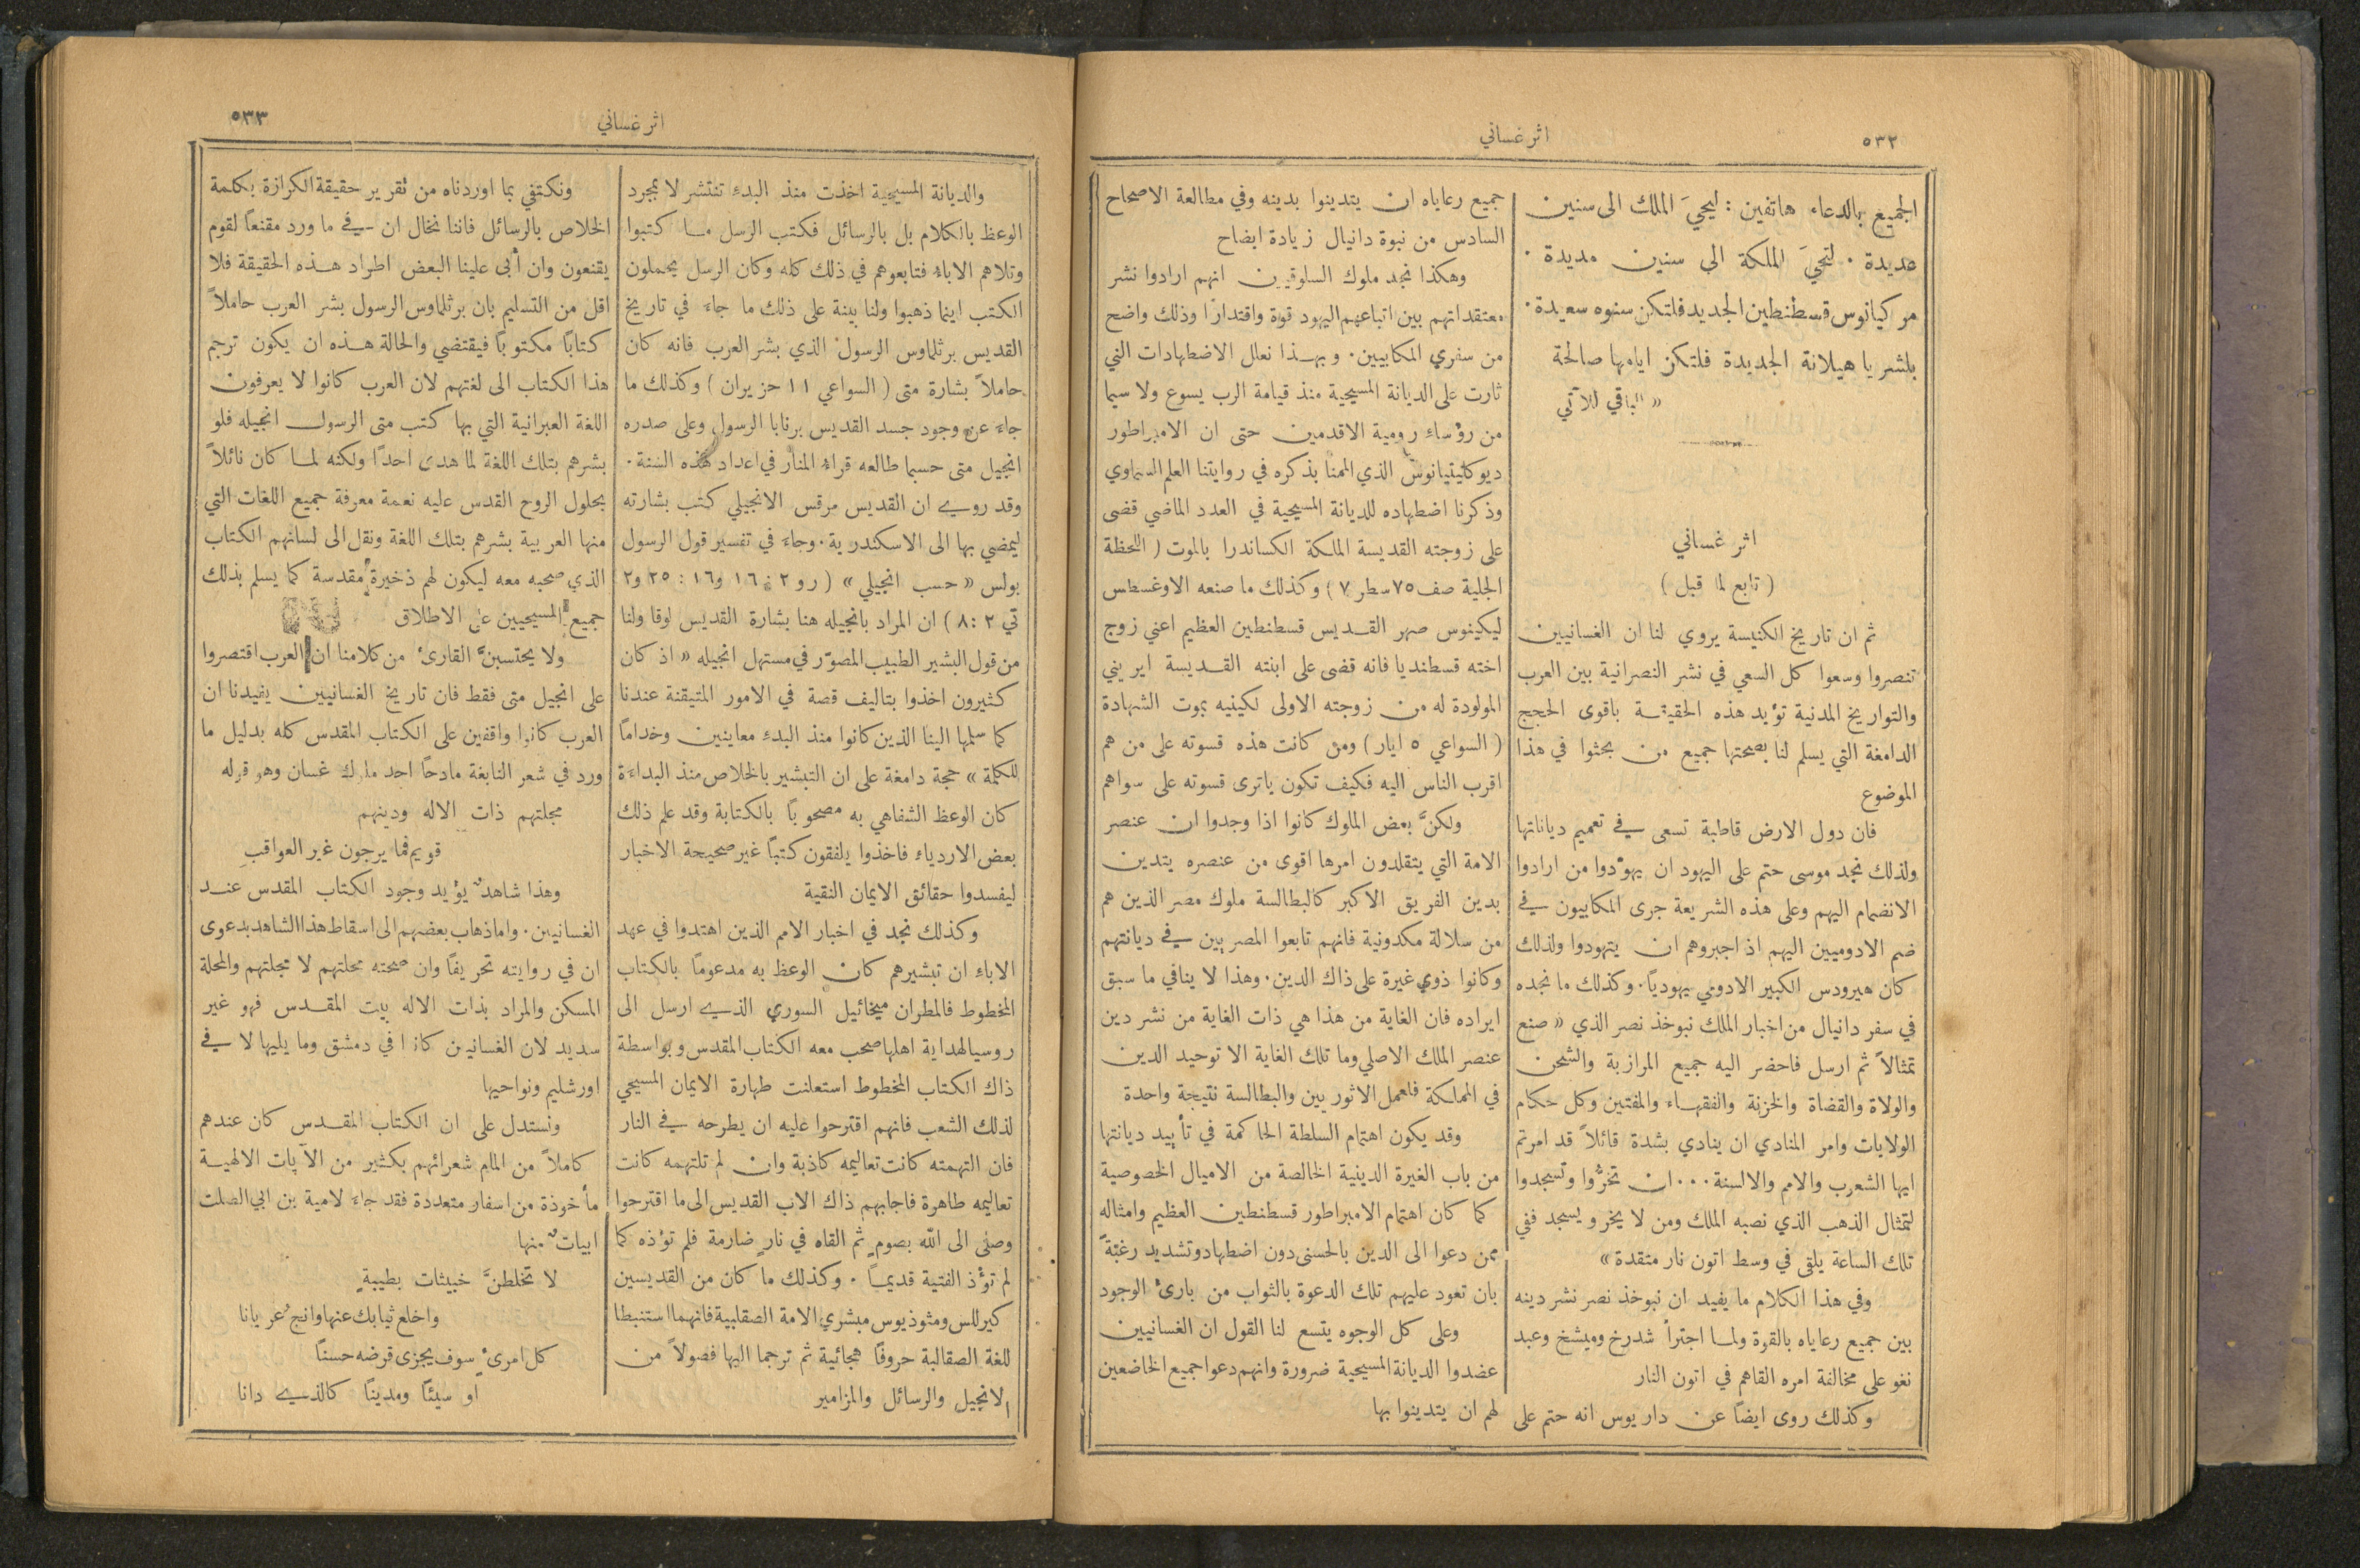 ٥٣٢
اثر غساني
الجميع بالدعاء هاتفين : ليحيَ الملك الى سنين
عديدة . لتحيَ الملكة الى سنين مديدة .
مركيانوس قسطنطين الجديد فلتكن سنوه سعيدة .
بلشريا هيلانة الجديدة فلتكن ايامها صالحة
« الباقي للآتي
اثر غساني
( تابع لما قبل )
ثم ان تاريخ الكنيسة يروي لنا ان الغسانيين
تنصروا وسعوا كل السعي في نشر النصرانية بين العرب
والتواريخ المدنية تؤيد هذه الحقيقة باقوى الحجج
الدامغة التي يسلم لنا بصحتها جميع من بحثوا في هذا
الموضوع
فان دول الارض قاطبة تسعى في تعميم دياناتها
ولذلك نجد موسى حتم على اليهود ان يهوّدوا من ارادوا
الانضمام اليهم وعلى هذه الشريعة جرى المكابيون في
ضم الادوميين اليهم اذ اجبروهم ان يتهودوا ولذلك
كان هيرودس الكبير الادومي يهودياً . وكذلك ما نجده
في سفر دانيال من اخبار الملك نبوخذ نصر الذي « صنع
تمثالاً ثم ارسل فاحضر اليه جميع المرازبة والشحن
والولاة والقضاة والخزنة والفقهاء والمفتين وكل حكام
الولايات وامر المنادي ان ينادي بشدة قائلاً قد امرتم
ايها الشعوب والامم والالسنة . . . ان تخرُّوا وتسجدوا
لتمثال الذهب الذي نصبه الملك ومن لا يخر ويسجد ففي
تلك الساعة يلقى في وسط اتون نار متقدة »
وفي هذا الكلام ما يفيد ان نبوخذ نصر نشر دينه
بين جميع رعاياه بالقوة ولما اجترأ شدرخ وميشخ وعبد
نغو على مخالفة امره القاهم في اتون النار
وكذلك روى ايضاً عن داريوس انه حتم على
جميع رعاياه ان يتدينوا بدينه وفي مطالعة الاصحاح
السادس من نبوة دانيال زيادة ايضاح
وهكذا نجد ملوك السلوقيين انهم ارادوا نشر
معتقداتهم بين اتباعهم اليهود قوة واقتداراً وذلك واضح
من سفري المكابيين . وبهذا نعلل الاضطهادات التي
ثارت على الديانة المسيحية منذ قيامة الرب يسوع ولا سيما
من رؤساء رومية الاقدمين حتى ان الامبراطور
ديوكليتيانوس الذي الممنا بذكره في روايتنا العلم السماوي
وذكرنا اضطهاده للديانة المسيحية في العدد الماضي قضى
على زوجته القديسة الملكة الكساندرا بالموت ( اللحظة
الجلية صف ٧٥ سطر ٧ ) وكذلك ما صنعه الاوغسطس
ليكينوس صهر القديس قسطنطين العظيم اعني زوج
اخته قسطنديا فانه قضى على ابنته القديسة ايريني
المولودة له من زوجته الاولى لكينيه بموت الشهادة
( السواعي ٥ ايار ) ومن كانت هذه قسوته على من هم
اقرب الناس اليه فكيف تكون ياترى قسوته على سواهم
ولكنَّ بعض الملوك كانوا اذا وجدوا ان عنصر
الامة التي يتقلدون امرها اقوى من عنصره يتدين
بدين الفريق الاكبر كالبطالسة ملوك مصر الذين هم
من سلالة مكدونية فانهم تابعوا المصريين في ديانتهم
وكانوا ذوي غيرة على ذاك الدين . وهذا لا ينافي ما سبق
ايراده فان الغاية من هذا هي ذات الغاية من نشر دين
عنصر الملك الاصلي وما تلك الغاية الا توحيد الدين
في المملكة فلعمل الاثوريين والبطالسة نتيجة واحدة
وقد يكون اهتمام السلطة الحاكمة في تأييد ديانتها
من باب الغيرة الدينية الخالصة من الاميال الخصوصية
كما كان اهتمام الامبراطور قسطنطين العظيم وامثاله
ممن دعوا الى الدين بالحسنى دون اضطهاد وتشديد رغبةً
بان تعود عليهم تلك الدعوة بالثواب من بارئ الوجود
وعلى كل الوجوه يتسع لنا القول ان الغسانيين
عضدوا الديانة المسيحية ضرورة وانهم دعوا جميع الخاضعين
لهم ان يتدينوا بها
اثر غساني
٥٣٣
والديانة المسيحية اخذت منذ البدء تنتشر لا بمجرد
الوعظ بالكلام بل بالرسائل فكتب الرسل ما كتبوا
وتلاهم الاباء فتابعوهم في ذلك كله وكان الرسل يحملون
الكتب اينما ذهبوا ولنا بينة على ذلك ما جاء في تاريخ
القديس برثلماوس الرسول الذي بشر العرب فانه كان
حاملاً بشارة متى ( السواعي ١١ حزيران ) وكذلك ما
جاء عن وجود جسد القديس برنابا الرسول وعلى صدره
انجيل متى حسبما طالعه قراء المنار في اعداد هذه السنة .
وقد روي ان القديس مرقس الانجيلي كتب بشارته
ليمضي بها الى الاسكندرية . وجاء في تفسير قول الرسول
بولس « حسب انجيلي » ( رو ٢ : ١٦ و١٦ : ٢٥ و٢
تي ٢ : ٨ ) ان المراد بانجيله هنا بشارة القديس لوقا ولنا
من قول البشير الطبيب المصوّر في مستهل انجيله « اذ كان
كثيرون اخذوا بتاليف قصة في الامور المتيقنة عندنا
كما سلمها الينا الذين كانوا منذ البدء معاينين وخداماً
للكلمة » حجة دامغة على ان التبشير بالخلاص منذ البداءة
كان الوعظ الشفاهي به مصحوباً بالكتابة وقد علم ذلك
بعض الاردياء فاخذوا يلفقون كتباً غير صحيحة الاخبار
ليفسدوا حقائق الايمان النقية
وكذلك نجد في اخبار الامم الذين اهتدوا في عهد
الاباء ان تبشيرهم كان الوعظ به مدعوماً بالكتاب
المخطوط فالمطران ميخائيل السوري الذي ارسل الى
روسيا لهداية اهلها صحب معه الكتاب المقدس وبواسطة
ذاك الكتاب المخطوط استعلنت طهارة الايمان المسيحي
لذلك الشعب فانهم اقترحوا عليه ان يطرحه في النار
فان التهمته كانت تعاليمه كاذبة وان لم تلتهمه كانت
تعاليمه طاهرة فاجابهم ذاك الاب القديس الى ما اقترحوا
وصلى الى الله بصوم ثم القاه في نار ضارمة فلم تؤذه كما
لم تؤذ الفتية قديماً . وكذلك ما كان من القديسين
كيرللس ومثوذيوس مبشري الامة الصقلبية فانهما استنبطا
للغة الصقالبة حروفاً هجائية ثم ترجما اليها فصولاً من
الانجيل والرسائل والمزامير
ونكتفي بما اوردناه من تقرير حقيقة الكرازة بكلمة
الخلاص بالرسائل فاننا نخال ان في ما ورد مقنعاً لقوم
يقنعون وان أبى علينا البعض اطراد هذه الحقيقة فلا
اقل من التسليم بان برثلماوس الرسول بشر العرب حاملاً
كتاباً مكتوباً فيقتضي والحالة هذه ان يكون ترجم
هذا الكتاب الى لغتهم لان العرب كانوا لا يعرفون
اللغة العبرانية التي بها كتب متى الرسول انجيله فلو
بشرهم بتلك اللغة لما هدى احداً ولكنه لما كان نائلاً
بحلول الروح القدس عليه نعمة معرفة جميع اللغات التي
منها العربية بشرهم بتلك اللغة ونقل الى لسانهم الكتاب
الذي صحبه معه ليكون لهم ذخيرة مقدسة كما يسلم بذلك
جميع المسيحيين على الاطلاق
ولا يحتسبنَّ القارئ من كلامنا ان العرب اقتصروا
على انجيل متى فقط فان تاريخ الغسانيين يفيدنا ان
العرب كانوا واقفين على الكتاب المقدس كله بدليل ما
ورد في شعر النابغة مادحاً احد ملوك غسان وهو قوله
مجلتهم ذات الاله ودينهم
قويم فما يرجون غير العواقبِ
وهذا شاهدٌ يؤيد وجود الكتاب المقدس عند
الغسانيين . واما ذهاب بعضهم الى اسقاط هذا الشاهد بدعوى
ان في روايته تحريفاً وان صحته محلتهم لا مجلتهم والمحلة
المسكن والمراد بذات الاله بيت المقدس فهو غير
سديد لان الغسانيين كانوا في دمشق وما يليها لا في
اورشليم ونواحيها
ونستدل على ان الكتاب المقدس كان عندهم
كاملاً من المام شعرائهم بكثير من الآيات الالهية
مأخوذة من اسفار متعددة فقد جاء لامية بن ابي الصلت
ابياتٌ منها
لا تخلطنَّ خبيثات بطيبةٍ
واخلع ثيابك عنها وانجُ عريانا
كل امرئٍ سوف يجزى قرضه حسناً
او سيئاً ومديناً كالذي دانا